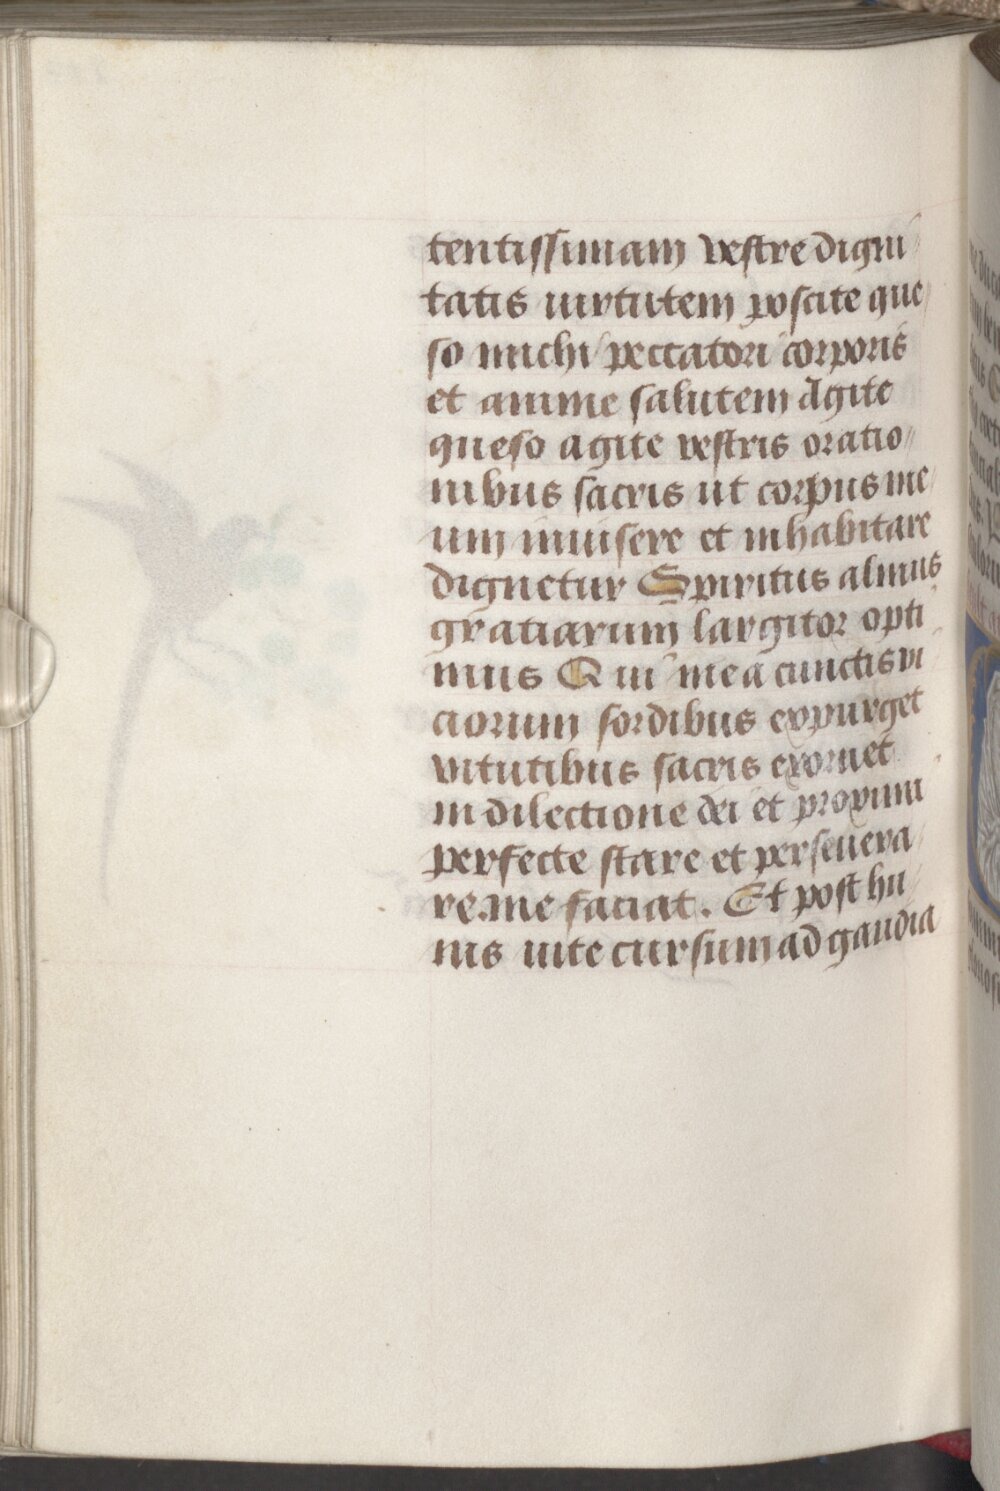 tentissimam vestre digni
tatis uirtutem poscite que
so michi peccatori corporis
et anime salutem Agite
queso agite vestris oratio
nibus sacris ut corpus me
um inuisere et inhabitare
dignetur Spiritus almus
gratiarum largitor opti
mus Qui mea cunctis vi
ciorum sordibus expurget
vitutibus sacris exornet
in dilectione dei et proximi
perfecte stare et perseuera
re.me faciat. Et post hu
nis uite cursum ad gaudia